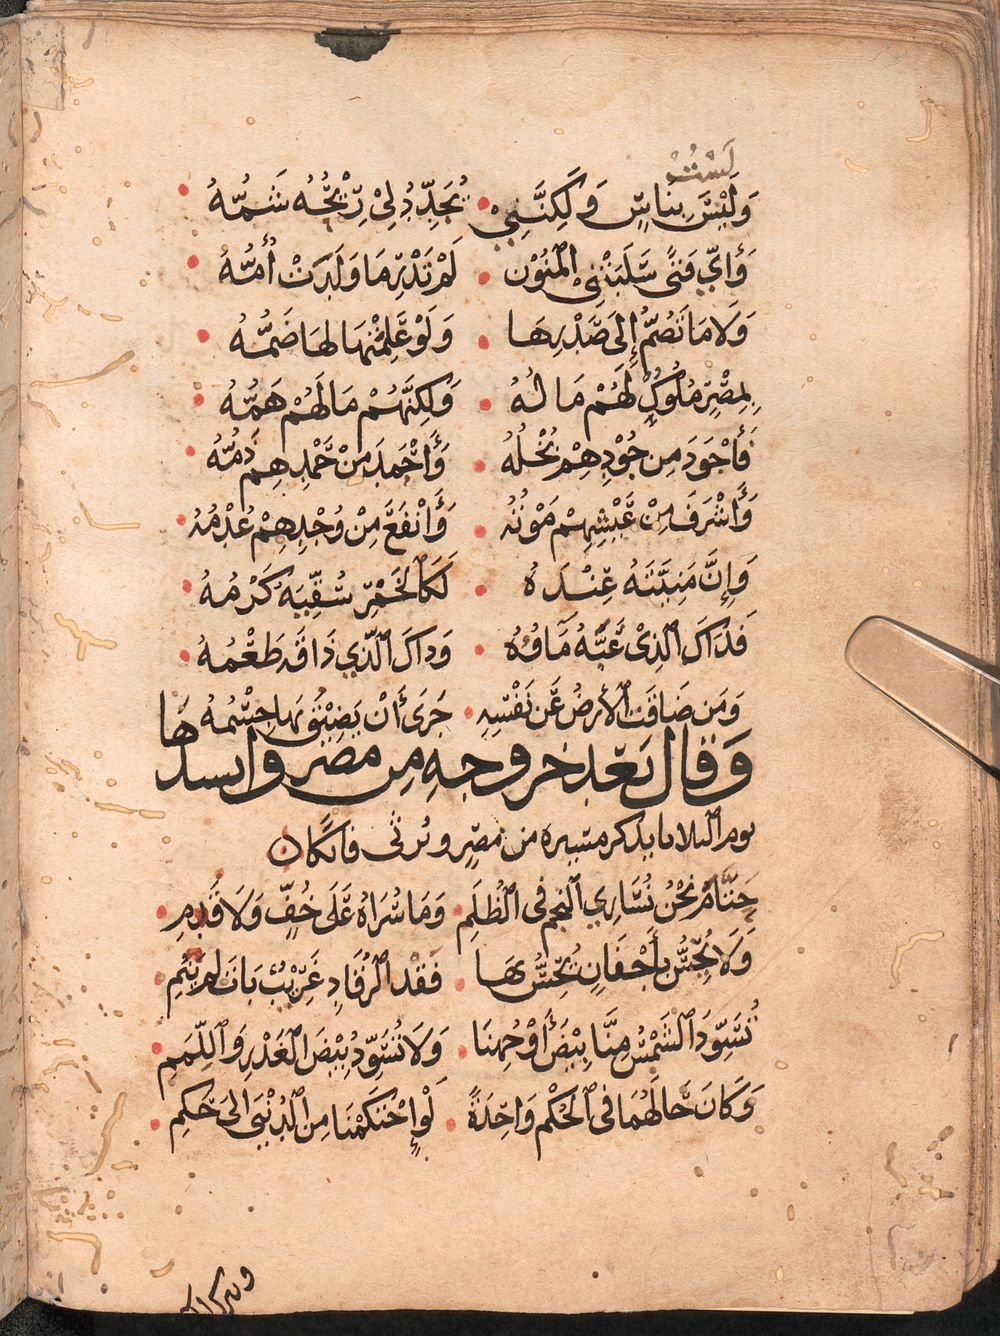 لَسْتُ
وَلَيْسَ بِنَاسٍ وَلَكِنَّنِيْ • يُجَدِّدُ لِيْ رِيْحُهُ شَمُّهُ •
وَأَيّ فَتىً سَلَبَتْنِيْ الْمَنُوْن • لَمْ تَدْرِ مَا وَلَدَتْ أُمُّهُ •
وَلَا مَا تَضُمُّ إِلَى صَدْرِهَا • وَلَوْ عَلِمَتْ هَالهَا ضَمُّهُ •
بِمِصْرَ مُلُوكٌ لَهُمْ مَالُهُ • وَلَكِنَّهُمْ مَا لَهُمْ هَمُّهُ •
فَأَجْوَدَ مِن جُوْدِهِمْ بُخْلُهُ • وَأَحْمَدَ مِنْ حَمْدِهِم ذَمُّهُ •
وَأَشْرَفَ مِنْ عَيْشِهِمْ مَوْتُهُ • وَأَنْفَعَ مِنْ وُجْدِهِمْ عُدْمُهُ •
وَإِنَّ مَنِيَّتَهُ عِنْدَهُ • لَكَالْخَمْرِ سُقِّيَهُ كَرْمُهُ •
فَذَاكَ الَّذِيْ عَبَّهُ مَاؤُهُ • وَذَاكَ الَّذِي ذَاقَهُ طَعْمُهُ •
وَمَن ضَاقَتِ الْأَرضُ عَن نَفْسِهِ • حَرَىً أَنْ يَضِيْقَ بِهَا جِسْمُهُ
وَقَالَ بَعْد خروجهِ مِن مصر وانشدها
يوم الثلاثا يذكر مسيره من مصر ويرثى فاتكا
حَتَّامَ نَحْنُ نُسَارِي النجمَ فى الظُّلَمِ • وَمَا سُرَاهُ عَلَى خُفٍّ وَلَا قَدَمِ •
وَلَا يُحِسُّ بِأَجْفَانٍ يُحِسُّ بَهَا • فَقْدَ الرُّقَادِ غَرِيْبٌ بَاتَ لَمْ يَنَمِ •
تُسَوِّدُ الشَّمْسُ مِنَّا بِيْضَ أَوْجُهِنَا • وَلَا تُسَوِّدُ بِيْضَ الْعُذْرِ وَاللِّمَمِ •
وَكَانَ حَالَهُمَا فى الْحُكْمِ وَاحِدَةً • لَوِ احْتَكَمْنَا مِنَ الدُّنْيَى الى حَكَمِ •